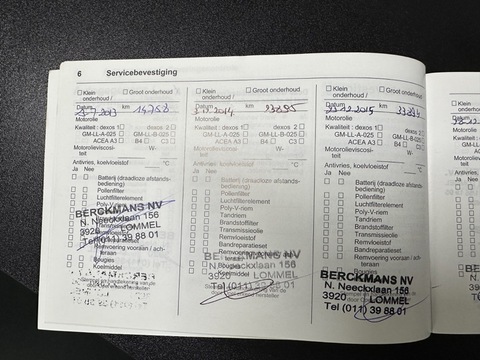 6 Servicebevestiging
☐ Klein onderhoud / ☐ Groot onderhoud
Datum km 14.758
Motorolie
Kwaliteit : dexos 1 ☐ dexos 2 ☐
GM-LL-A-025 ☐ GM-LL-B-025 ☐
ACEA A3 ☐ B4 ☐ C3 ☐
Motorolieviscosi- W-
teit
Antivries, koelvloeistof °C
Ja Nee
☐ ☐ Batterij (draadloze afstands-
bediening)
☐ ☐ Pollenfilter
☐ ☐ Luchtfilterelement
☐ ☐ Poly-V-riem
BERCKMANS NV
N. Neeckxlaan 156
3920 LOMMEL
Tel (011) 39 88 01
Remvoeringen vooraan / ach-
teraan
Bougies
Koelmiddel
☐ Klein onderhoud / ☐ Groot onderhoud
Datum 12.2014 km
Motorolie
Kwaliteit : dexos 1 ☐ dexos 2 ☐
GM-LL-A-025 ☐ GM-LL-B-025 ☐
ACEA A3 ☐ B4 ☐ C3 ☐
Motorolieviscosi- W-
teit
Antivries, koelvloeistof °C
Ja Nee
☐ ☐ Batterij (draadloze afstands-
bediening)
☐ ☐ Pollenfilter
☐ ☐ Luchtfilterelement
☐ ☐ Poly-V-riem
☐ ☐ Tandriem
☐ ☐ Brandstoffilter
☐ ☐ Transmissieolie
☐ ☐ Remvloeistof
☐ ☐ Bandreparatieset
BERCKMANS NV
N. Neeckxlaan 156
3920 LOMMEL
Tel (011) 39 88 01
☐ Klein onderhoud / ☐ Groot onderhoud
Datum 12.2015 km
Motorolie
Kwaliteit : dexos 1 ☐ dexos 2 ☐
GM-LL-A-025 ☐ GM-LL-B-025 ☐
ACEA A3 ☐ B4 ☐ C3 ☐
Motorolieviscosi- W-
teit
Antivries, koelvloeistof °C
Ja Nee
☐ ☐ Batterij (draadloze afstands-
bediening)
☐ ☐ Pollenfilter
☐ ☐ Luchtfilterelement
☐ ☐ Poly-V-riem
☐ ☐ Tandriem
☐ ☐ Brandstoffilter
☐ ☐ Transmissieolie
☐ ☐ Remvloeistof
☐ ☐ Bandreparatieset
Remvoeringen vooraan / ach-
teraan
Bougies
BERCKMANS NV
N. Neeckxlaan 156
3920 LOMMEL
Tel (011) 39 88 01